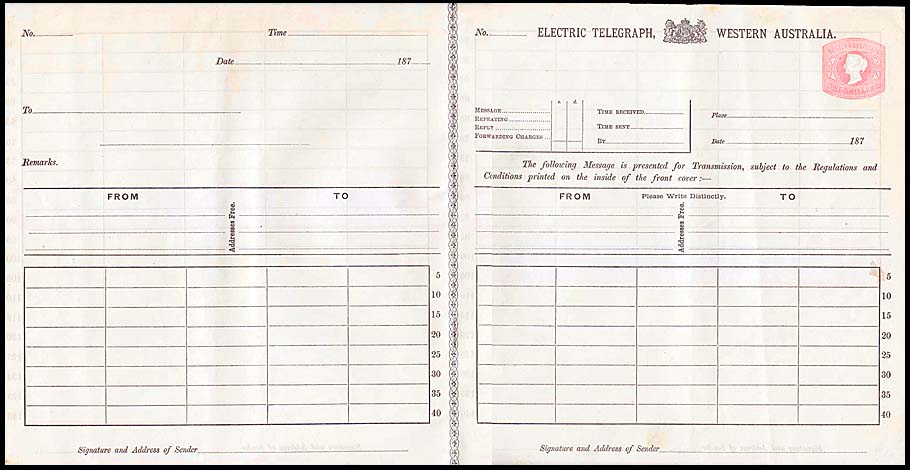 No.
Time
Date 187
To
Remarks.
FROM TO
Addresses Free.
5
10
15
20
25
30
35
40
Signature and Address of Sender
No.
ELECTRIC TELEGRAPH, WESTERN AUSTRALIA.
WESTERN AUSTRALIA
ONE SHILLING
s. d.
MESSAGE
REPEATING
REPLY
FORWARDING CHARGES
TIME RECEIVED
TIME SENT
BY
Place
Date 187
The following Message is presented for Transmission, subject to the Regulations and
Conditions printed on the inside of the front cover:—
FROM Please Write Distinctly. TO
Addresses Free.
5
10
15
20
25
30
35
40
Signature and Address of Sender